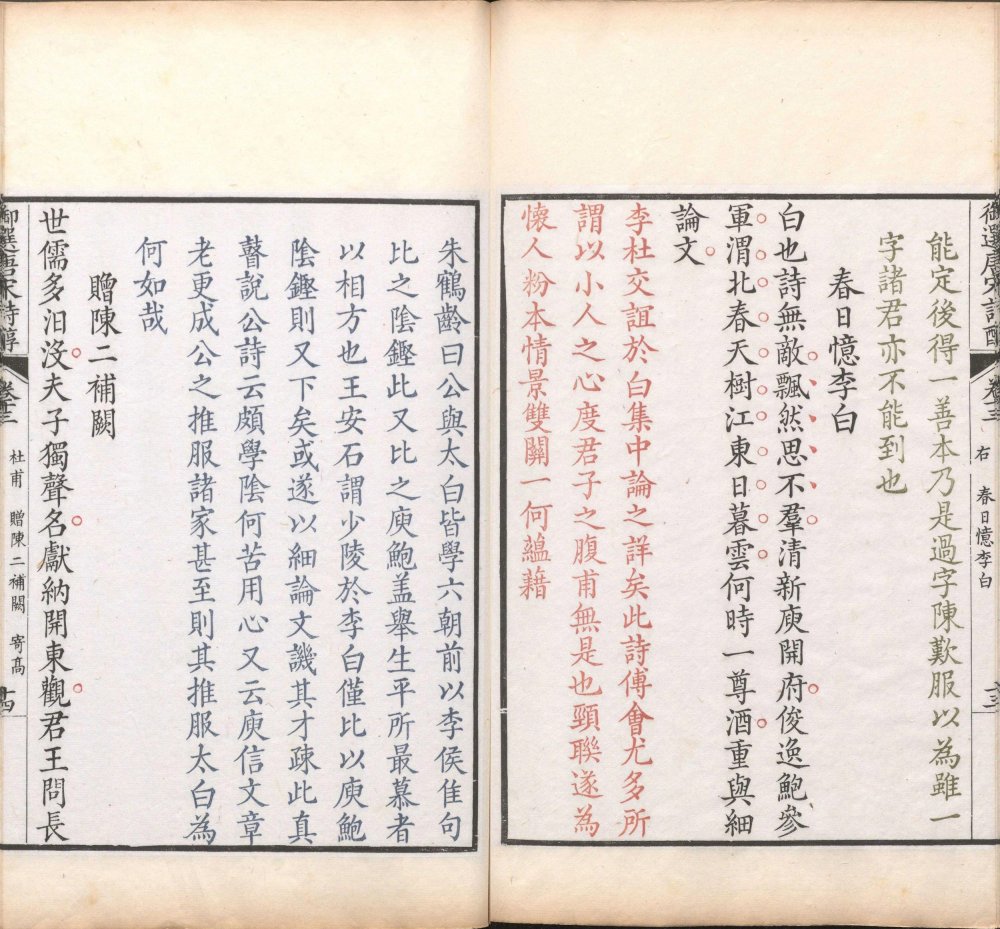 能定後得一善本乃是過字陳歎服以為雖一
字諸君亦不能到也
春日憶李白
白也詩無敵飄然思不羣清新庾開府俊逸鮑參
軍渭北春天樹江東日暮雲何時一尊酒重與細
論文
李杜交誼於白集中論之詳矣此詩傅會尤多所
謂以小人之心度君子之腹甫無是也頸聯遂為
懷人粉本情景雙關一何蘊藉
右 春日憶李白
朱鶴齡曰公與太白皆學六朝前以李侯佳句
比之陰鏗此又比之庾鮑盖舉生平所最慕者
以相方也王安石謂少陵於李白僅比以庾鮑
陰鏗則又下矣或遂以細論文譏其才疎此真
瞽說公詩云頗學陰何苦用心又云庾信文章
老更成公之推服諸家甚至則其推服太白為
何如哉
贈陳二補闕
世儒多汨沒夫子獨聲名獻納開東觀君王問長
御選唐宋詩醇
杜甫 贈陳二補闕 寄高